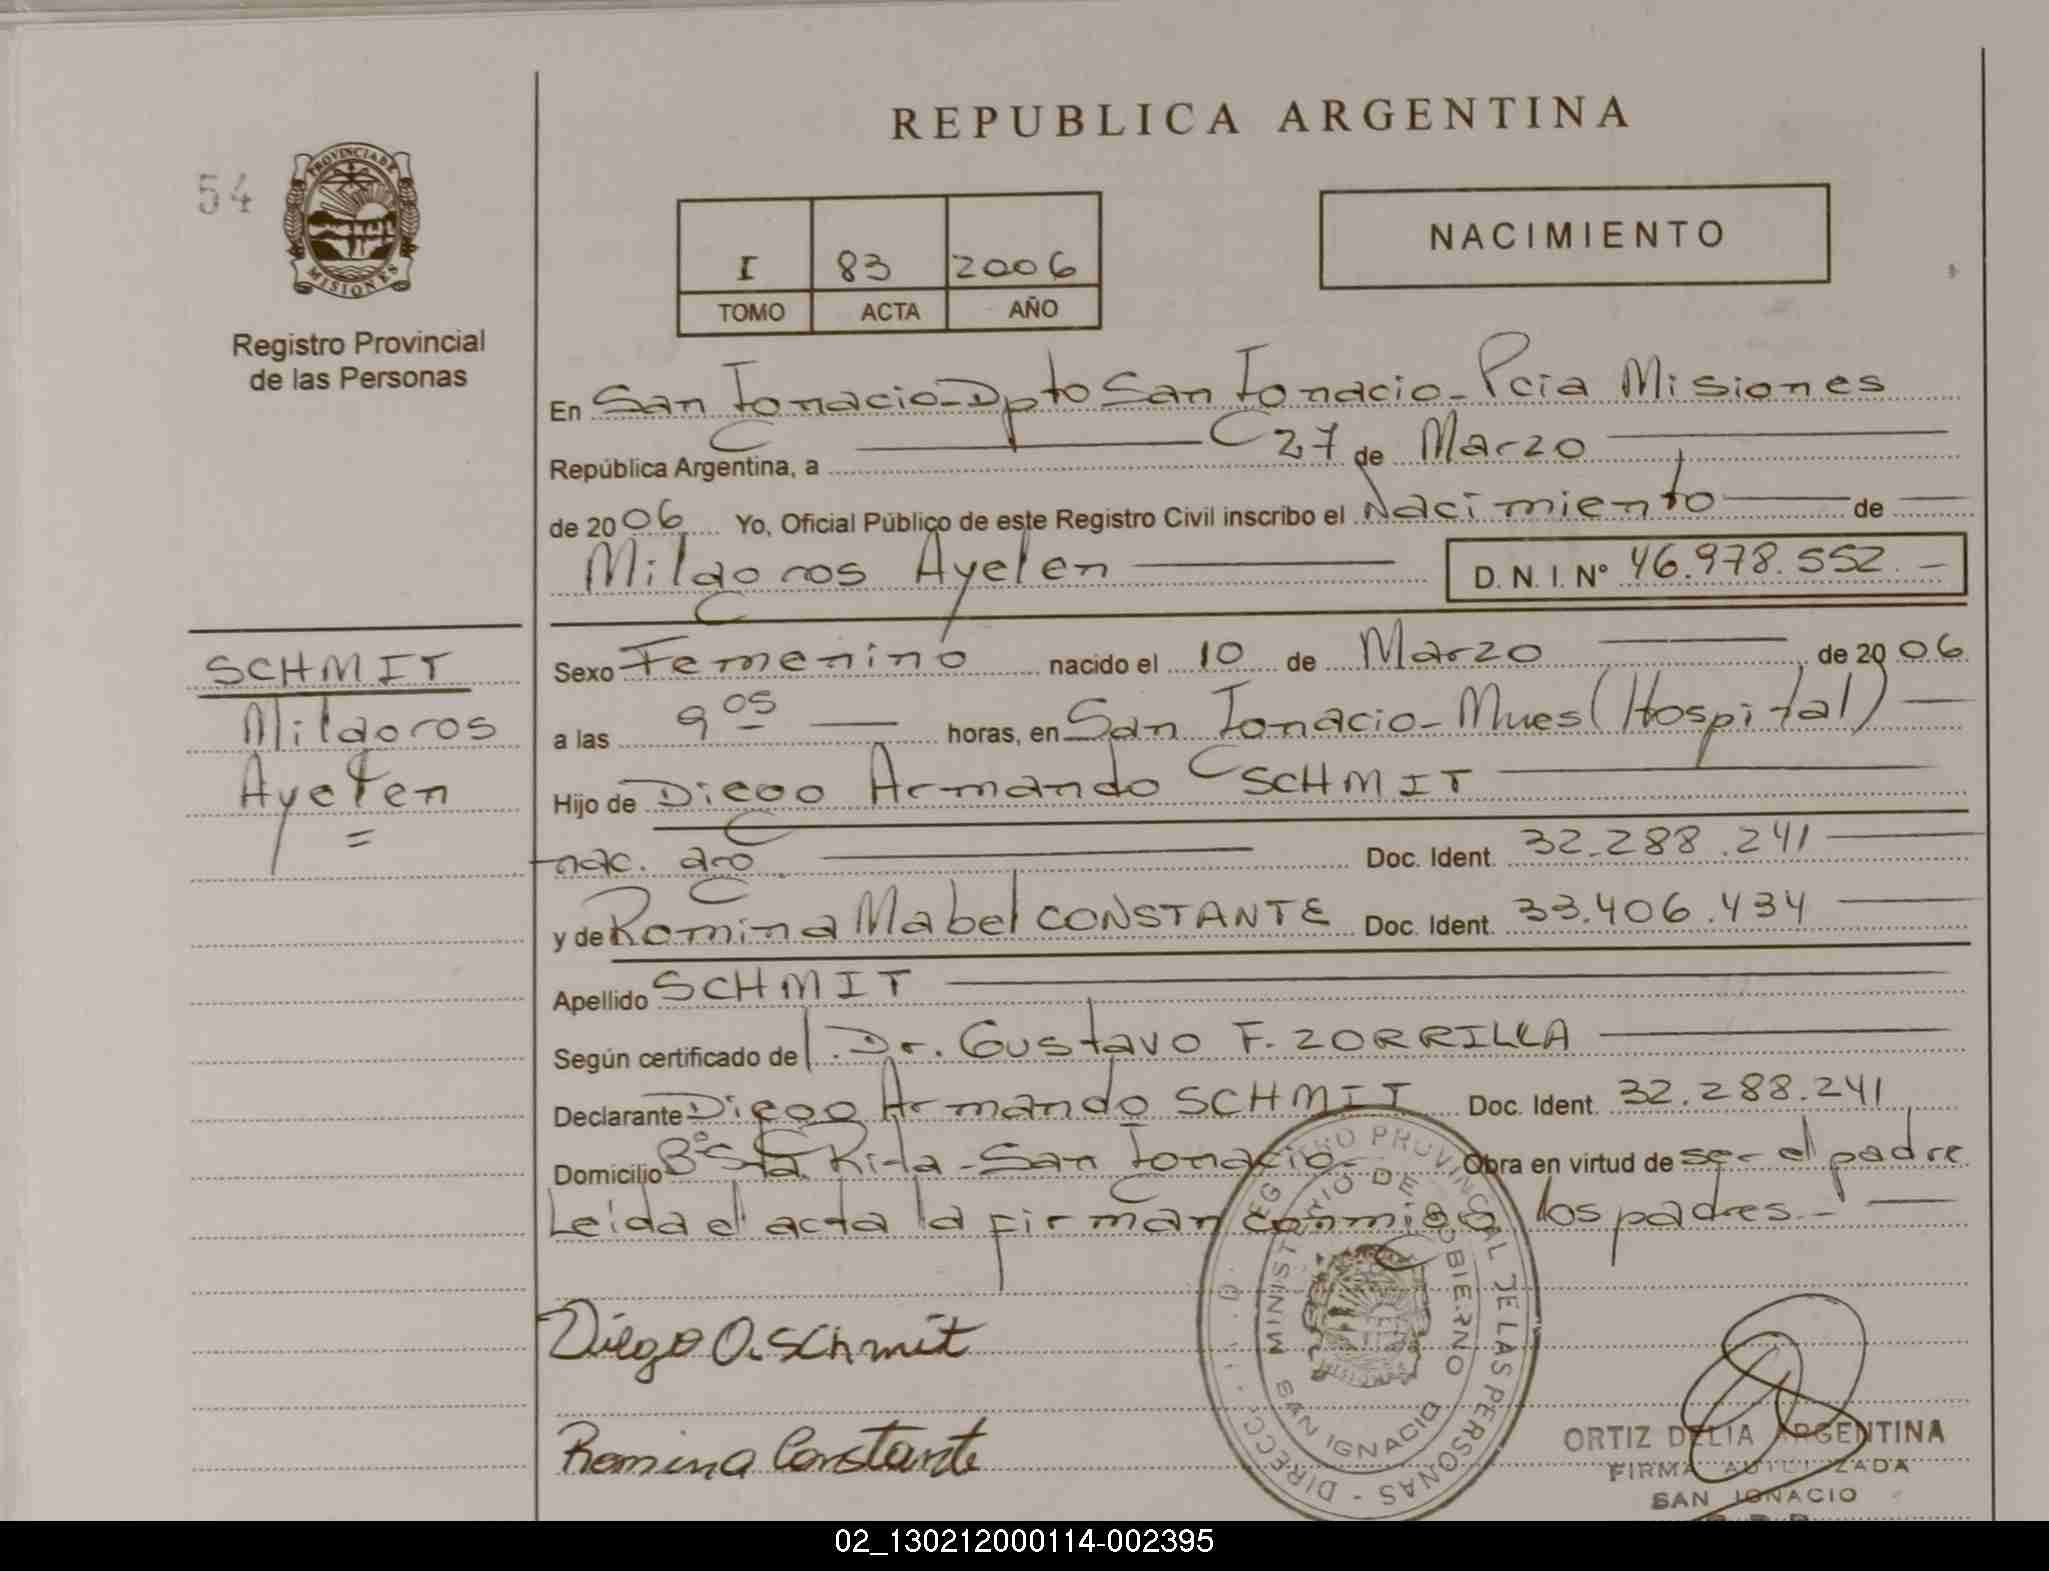 REPUBLICA ARGENTINA
54
PROVINCIA DE
MISIONES
Registro Provincial
de las Personas
I 83 2006
TOMO ACTA AÑO
NACIMIENTO
En San Ignacio-Dpto San Ignacio-Pcia Misiones
República Argentina, a 27 de Marzo
de 2006 Yo, Oficial Público de este Registro Civil inscribo el Nacimiento de
Milagros Ayelen D. N. I. N° 46.978.552.-
SCHMIT
Milagros
Ayelen
Sexo Femenino nacido el 10 de Marzo de 2006
a las 9 05 horas, en San Ignacio-Mnes (Hospital)
Hijo de Diego Armando SCHMIT
nac. arg. Doc. Ident. 32.288.241
y de Romina Mabel CONSTANTE Doc. Ident. 33.406.434
Apellido SCHMIT
Según certificado de Dr. Gustavo F. ZORRILLA
Declarante Diego Armando SCHMIT Doc. Ident. 32.288.241
Domicilio B° Sta Rita-San Ignacio- Obra en virtud de ser el padre
Leída el acta la firman conmigo los padres.-
Diego A. Schmit
Romina Constante
REGISTRO PROVINCIAL DE LAS PERSONAS - DIRECC
MINISTERIO DE GOBIERNO
SAN IGNACIO
ORTIZ DELIA ARGENTINA
FIRMA AUTORIZADA
SAN IGNACIO
02_130212000114-002395